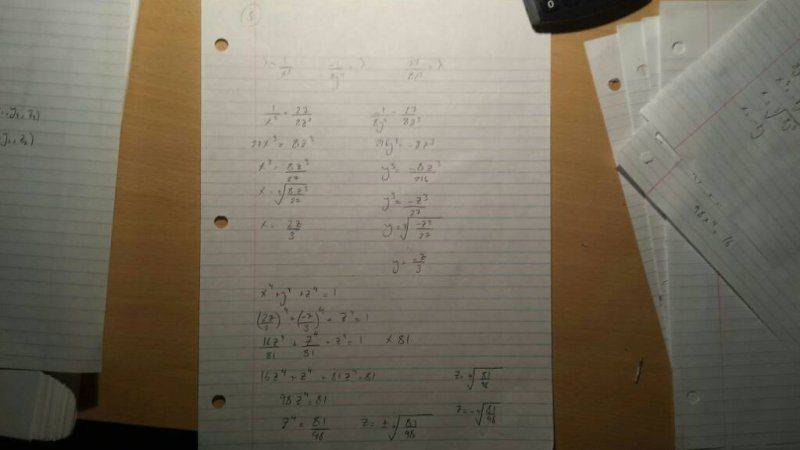 8
λ = 1/x³    -1/8y³ = λ    27/8z³ = λ
1/x³ = 27/8z³    -1/8y³ = 27/8z³
27x³ = 8z³    216y³ = -8z³
x³ = 8z³/27    y³ = -8z³/216
x = ∛(8z³/27)    y³ = -z³/27
x = 2z/3    y = ∛(-z³/27)
y = -z/3
x⁴ + y⁴ + z⁴ = 1
(2z/3)⁴ + (-z/3)⁴ + z⁴ = 1
16z⁴/81 + z⁴/81 + z⁴ = 1    × 81
16z⁴ + z⁴ + 81z⁴ = 81    z = ⁴√(81/98)
98z⁴ = 81    z = -⁴√(81/98)
z⁴ = 81/98    z = ± ⁴√(81/98)
98x⁴ = 16